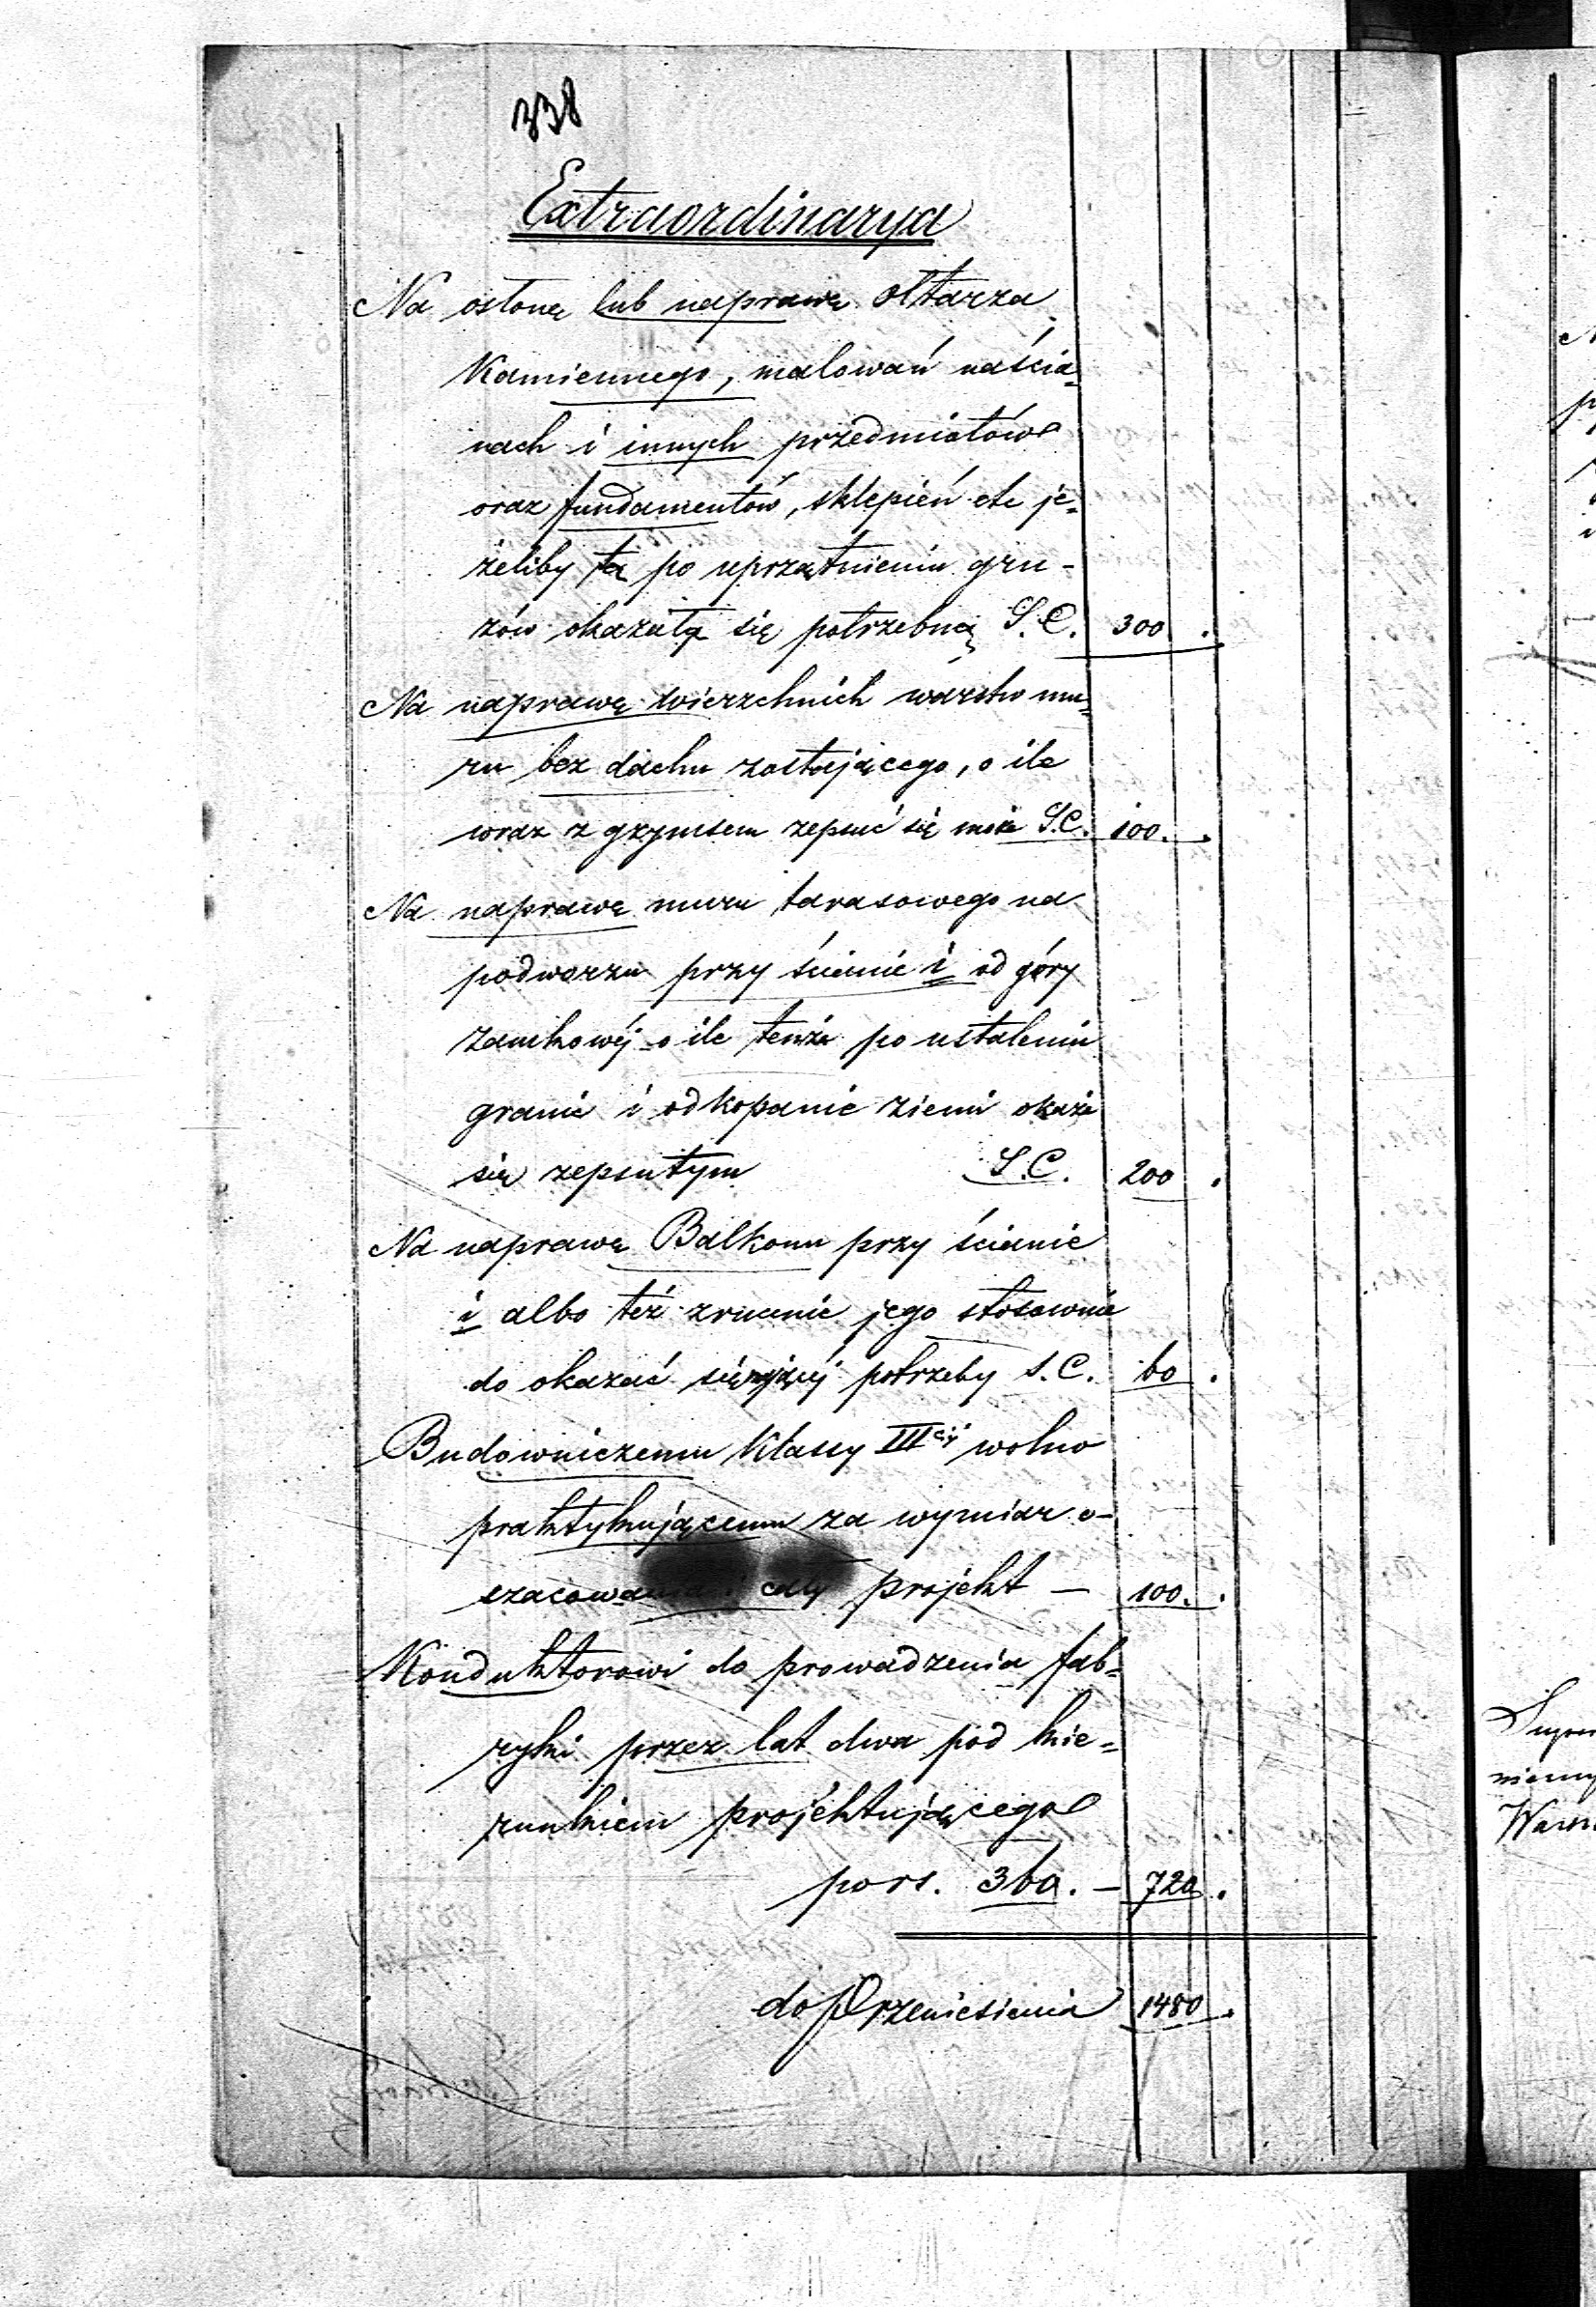 338
Extraordinarya
Na osłonę lub naprawę ołtarza
Kamiennego, malowań naścia=
nach i innych przedmiotów
oraz fundamentów, sklepień etc je=
żeliby tą po uprzątnieniu gru-
zów okazałą się potrzebną S.C. 300 .
Na naprawę wierzchnich warstw mu=
ru bez dachu zostającego, o ile
wraz z gzymsem zepsuć się może S.C. 100. .
Na naprawę muru tarasowego na
podworzu przy ścianie i od góry
zamkowéj o ile tenże po ustaleniu
granic i odkopanie ziemi okaże
się zepsutym S.C. 200 .
Na naprawę Balkonu przy ścianie
i albo też zrucenie jego stosownie
do okazać się potrzeby S.C. 60 .
Budowniczemu Klassy III wolno
praktykującemu za wymiar o-
szacowania i cały projekt — 100. .
Konduktorowi do prowadzenia fab=
ryki przez lat dwa pod kie=
runkiem projektującego
po rs. 360. — 720 .
do przeniesienia 1480 .
Warsz